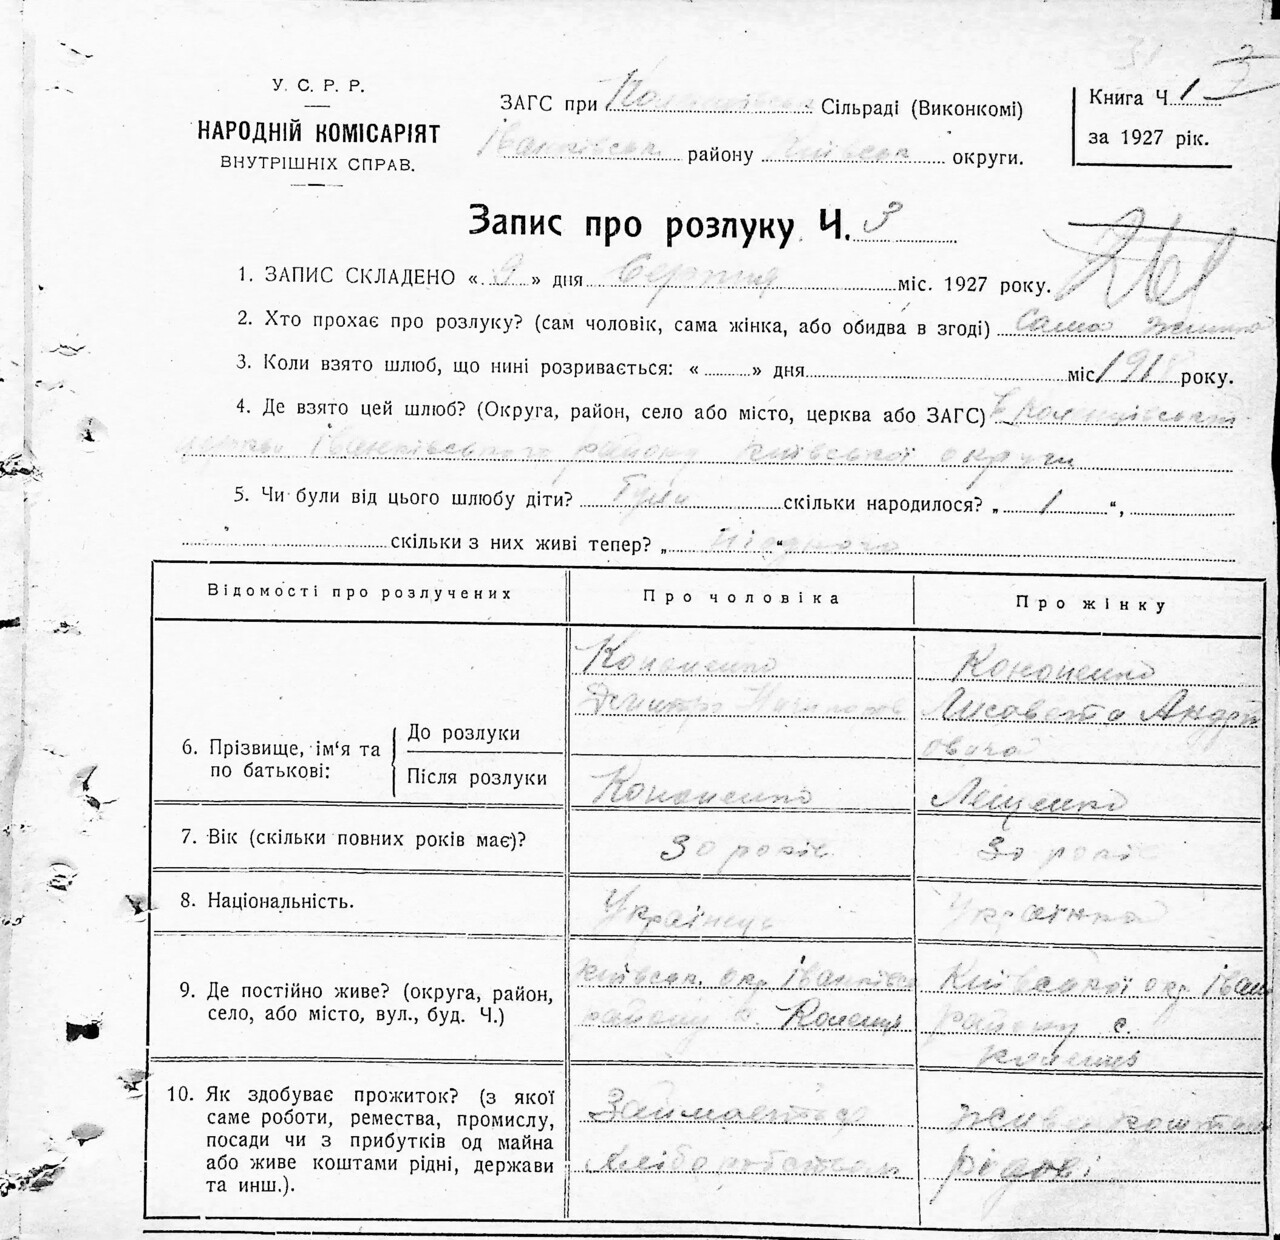 У. С. Р. Р.
НАРОДНІЙ КОМІСАРІЯТ
ВНУТРІШНІХ СПРАВ.
ЗАГС при Сільраді (Виконкомі)
Іванківськ. району Київськ округи.
Книга Ч. 1
за 1927 рік.
Запис про розлуку Ч. 3
1. ЗАПИС СКЛАДЕНО « 9 » дня Серпня міс. 1927 року.
2. Хто прохає про розлуку? (сам чоловік, сама жінка, або обидва в згоді) Сама
3. Коли взято шлюб, що нині розривається: « » дня міс 191 року.
4. Де взято цей шлюб? (Округа, район, село або місто, церква або ЗАГС) В
Іванківського району Київської округи
5. Чи були від цього шлюбу діти? скільки народилося? „ 1 “,
скільки з них живі тепер? „ “
Відомості про розлучених
Про чоловіка
Про жінку
6. Прізвище, ім‘я та по батькові:
До розлуки
Після розлуки
Кононенко
Дмитро
Кононенко
Кононенко
Лисовета Андрі
овича
Лещенко
7. Вік (скільки повних років має)?
30 років
30 років
8. Національність.
Українець
Українка
9. Де постійно живе? (округа, район,
село, або місто, вул., буд. Ч.)
Київськ. окр Іванківсь
району с.
Київської окр Іван
району с.
10. Як здобуває прожиток? (з якої
саме роботи, ремества, промислу,
посади чи з прибутків од майна
або живе коштами рідні, держави
та инш.).
Займається
хліборобством
живе коштам
рідні